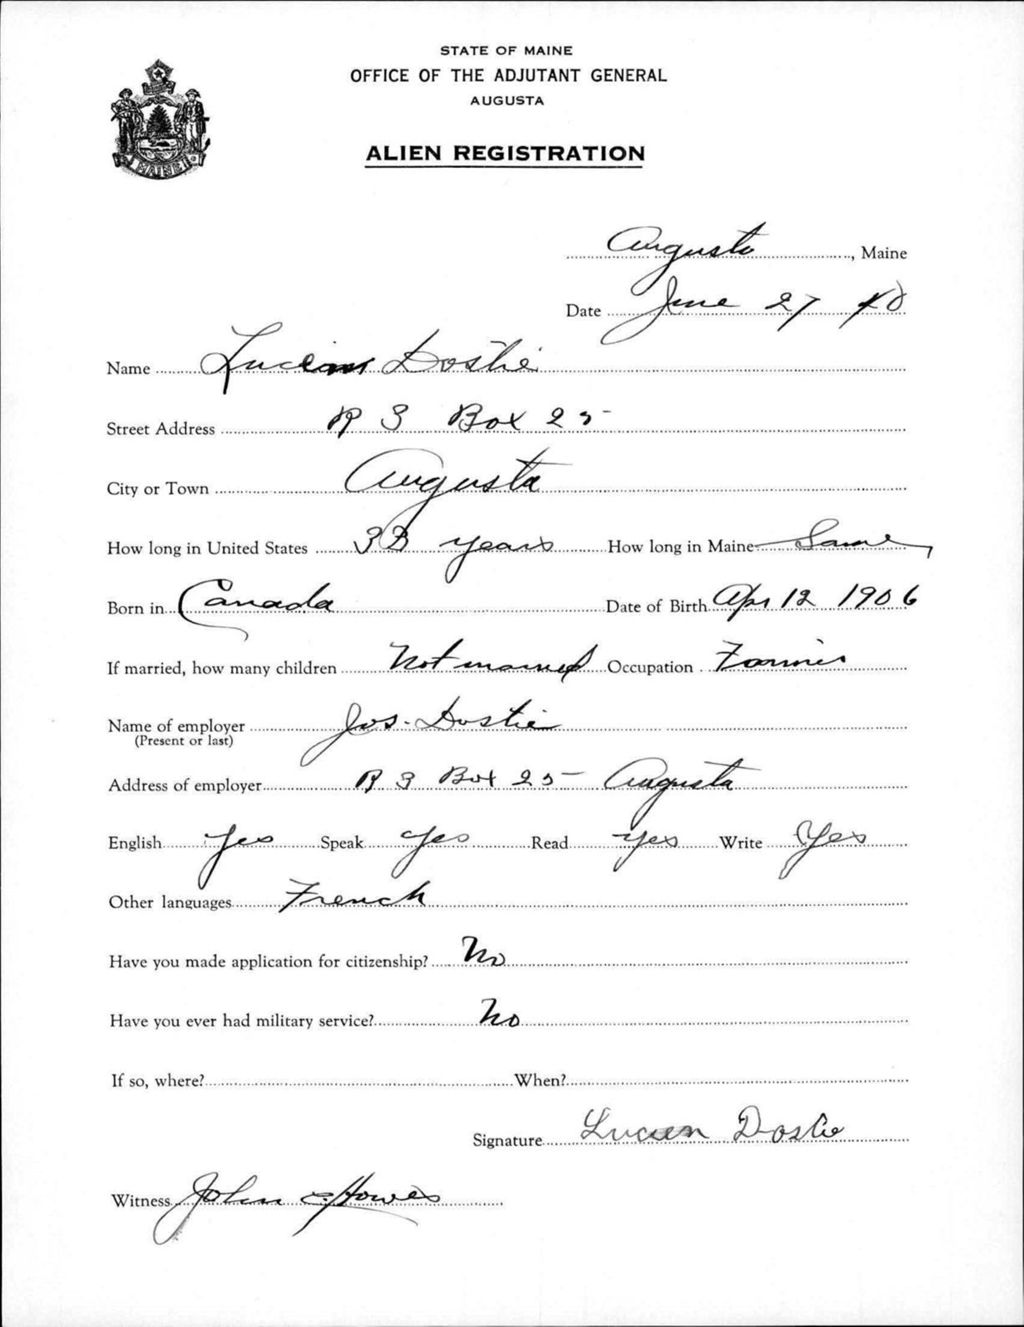 STATE OF MAINE
OFFICE OF THE ADJUTANT GENERAL
AUGUSTA
ALIEN REGISTRATION
MAINE
Augusta, Maine
Date June 27 40
Name Lucien Dostie
Street Address R 3 Box 25
City or Town Augusta
How long in United States 33 years How long in Maine Same
Born in Canada Date of Birth Apr 12 1906
If married, how many children Not married Occupation Farmer
Name of employer Jos. Dostie
(Present or last)
Address of employer R 3 Box 25 Augusta
English Yes Speak Yes Read Yes Write Yes
Other languages French
Have you made application for citizenship? No
Have you ever had military service? No
If so, where? When?
Signature Lucien Dostie
Witness John E Howes